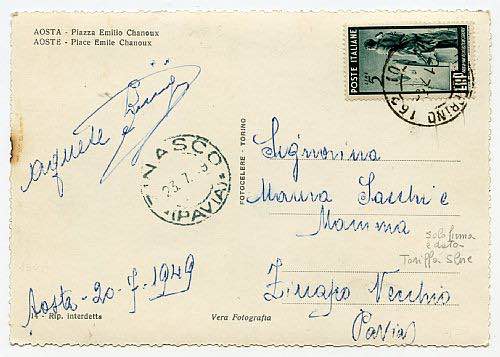 AOSTA - Piazza Emilio Chanoux
AOSTE - Place Emile Chanoux
POSTE ITALIANE
TORINO
NASCO
(PAVIA)
FOTOCELERE - TORINO
Signorina
Maura Sacchi e
Mamma
solo firma
e data
Tariffa
Zinasco Vecchio
(Pavia)
Aosta - 20-7-1949
Rip. interdetta
Vera Fotografia